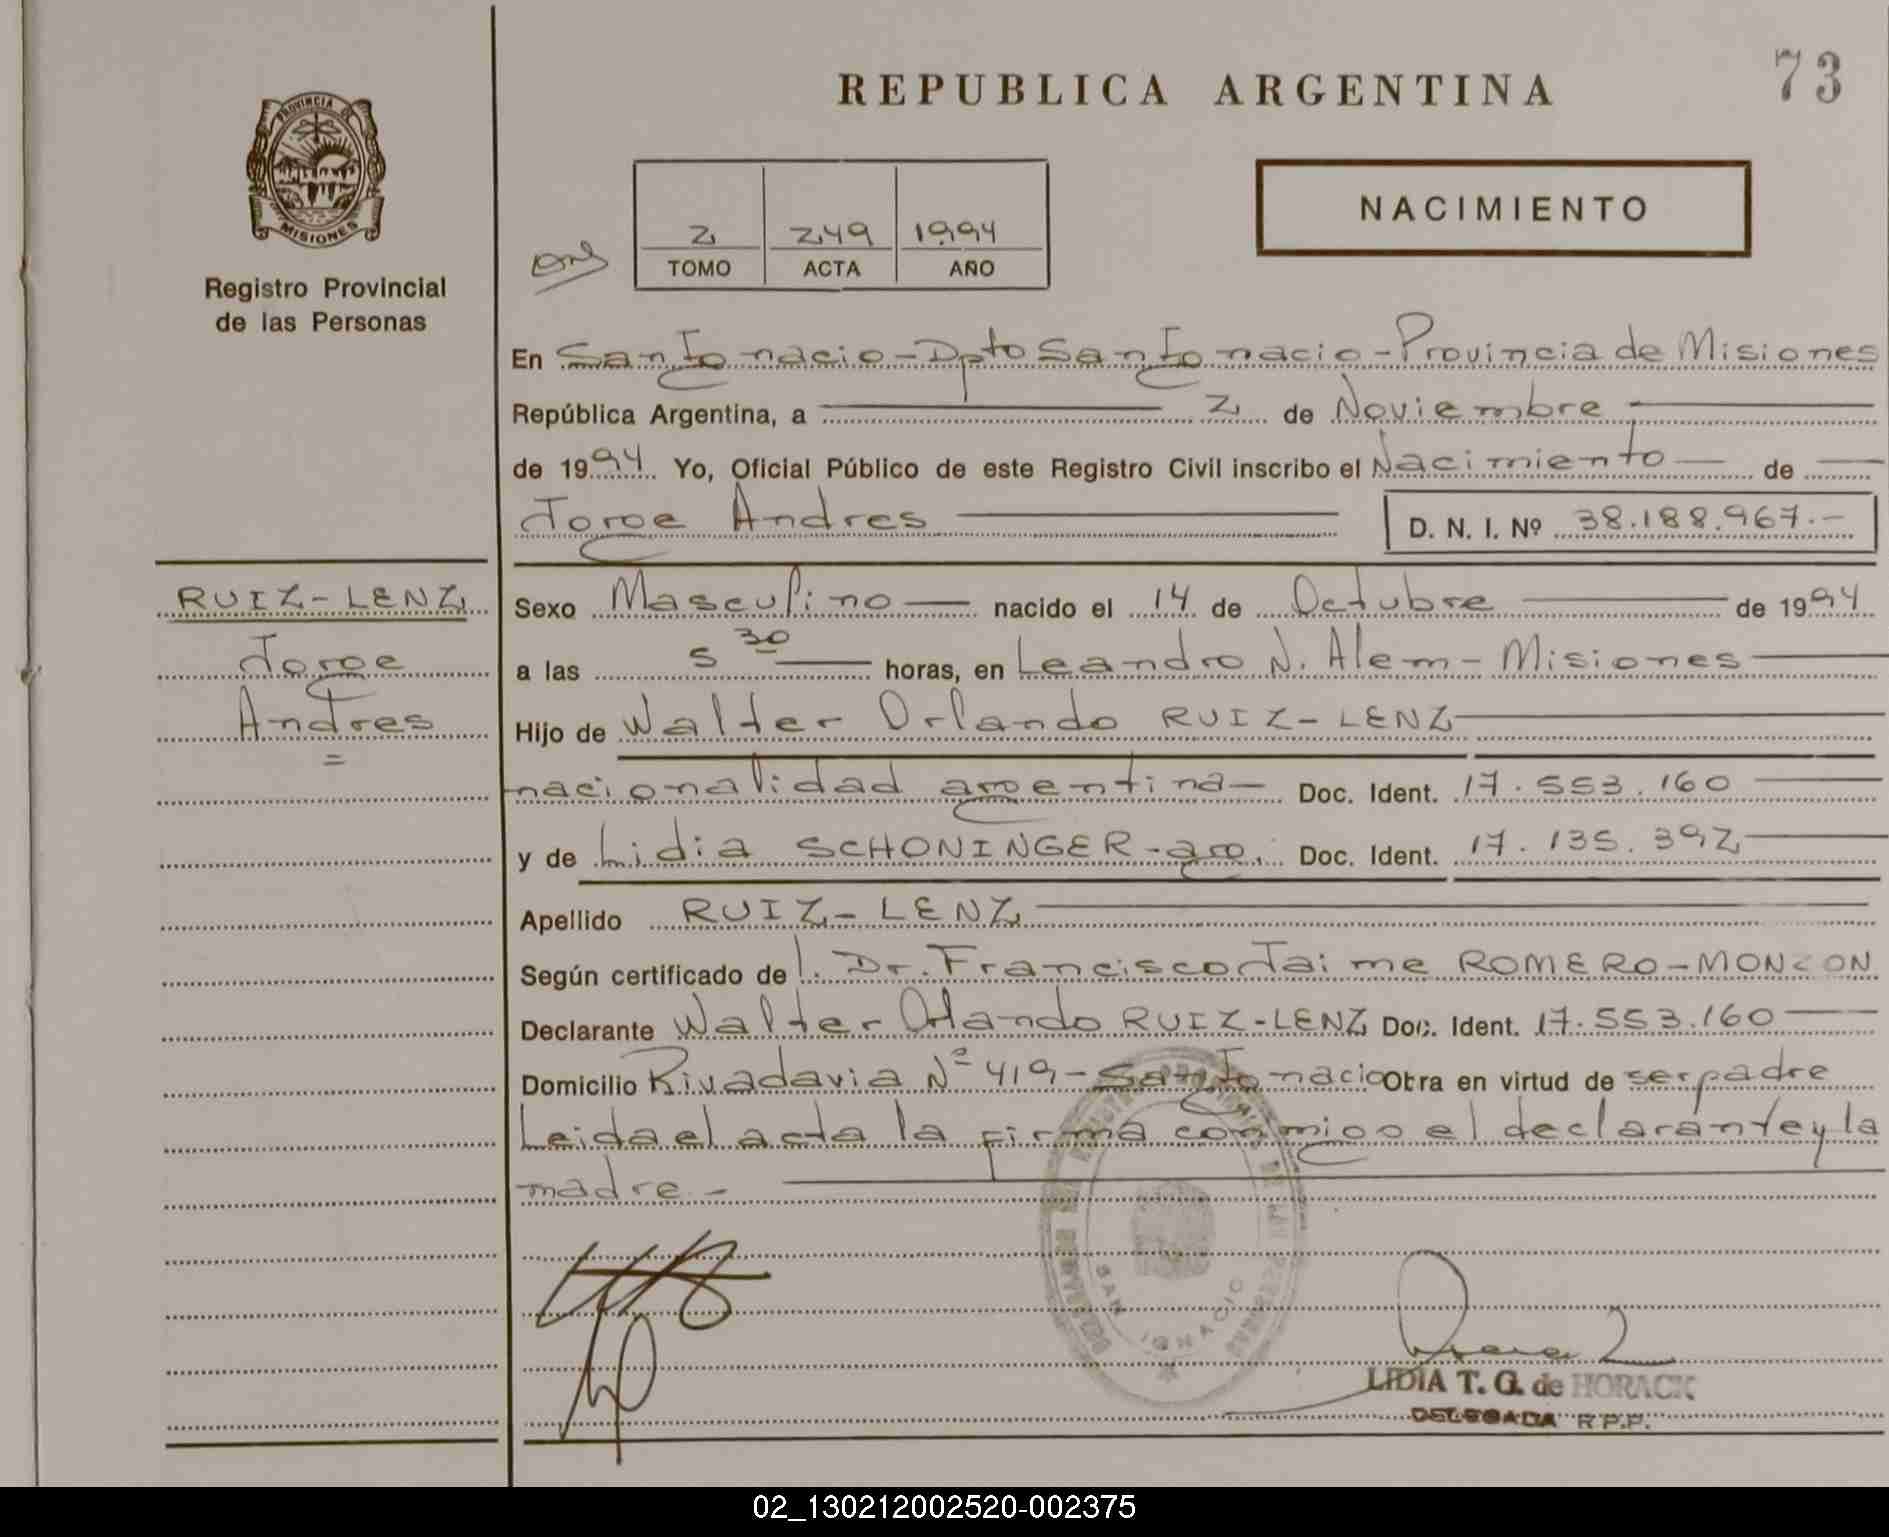 73
REPUBLICA ARGENTINA
PROVINCIA DE
MISIONES
Registro Provincial
de las Personas
2 249 1994
TOMO ACTA AÑO
NACIMIENTO
En San Ignacio - Dpto San Ignacio - Provincia de Misiones
República Argentina, a 2 de Noviembre
de 1994 Yo, Oficial Público de este Registro Civil inscribo el Nacimiento — de —
Jorge Andres D. N. I. Nº 38.188.967.-
RUIZ-LENZ
Jorge
Andres
=
Sexo Masculino — nacido el 14 de Octubre — de 1994
a las 5 30 — horas, en Leandro N. Alem - Misiones
Hijo de Walter Orlando RUIZ-LENZ
nacionalidad argentina — Doc. Ident. 17.553.160
y de Lidia SCHONINGER - arg. Doc. Ident. 17.135.392
Apellido RUIZ-LENZ
Según certificado de l. Dr. Francisco Jaime ROMERO-MONZON
Declarante Walter Orlando RUIZ-LENZ Doc. Ident. 17.553.160
Domicilio Rivadavia Nº 419 - San Ignacio Obra en virtud de ser padre
Leida el acta la firma conmigo el declarante y la
madre.-
SAN IGNACIO
LIDIA T. G. de HORACK
DELEGADA R.P.P.
02_130212002520-002375